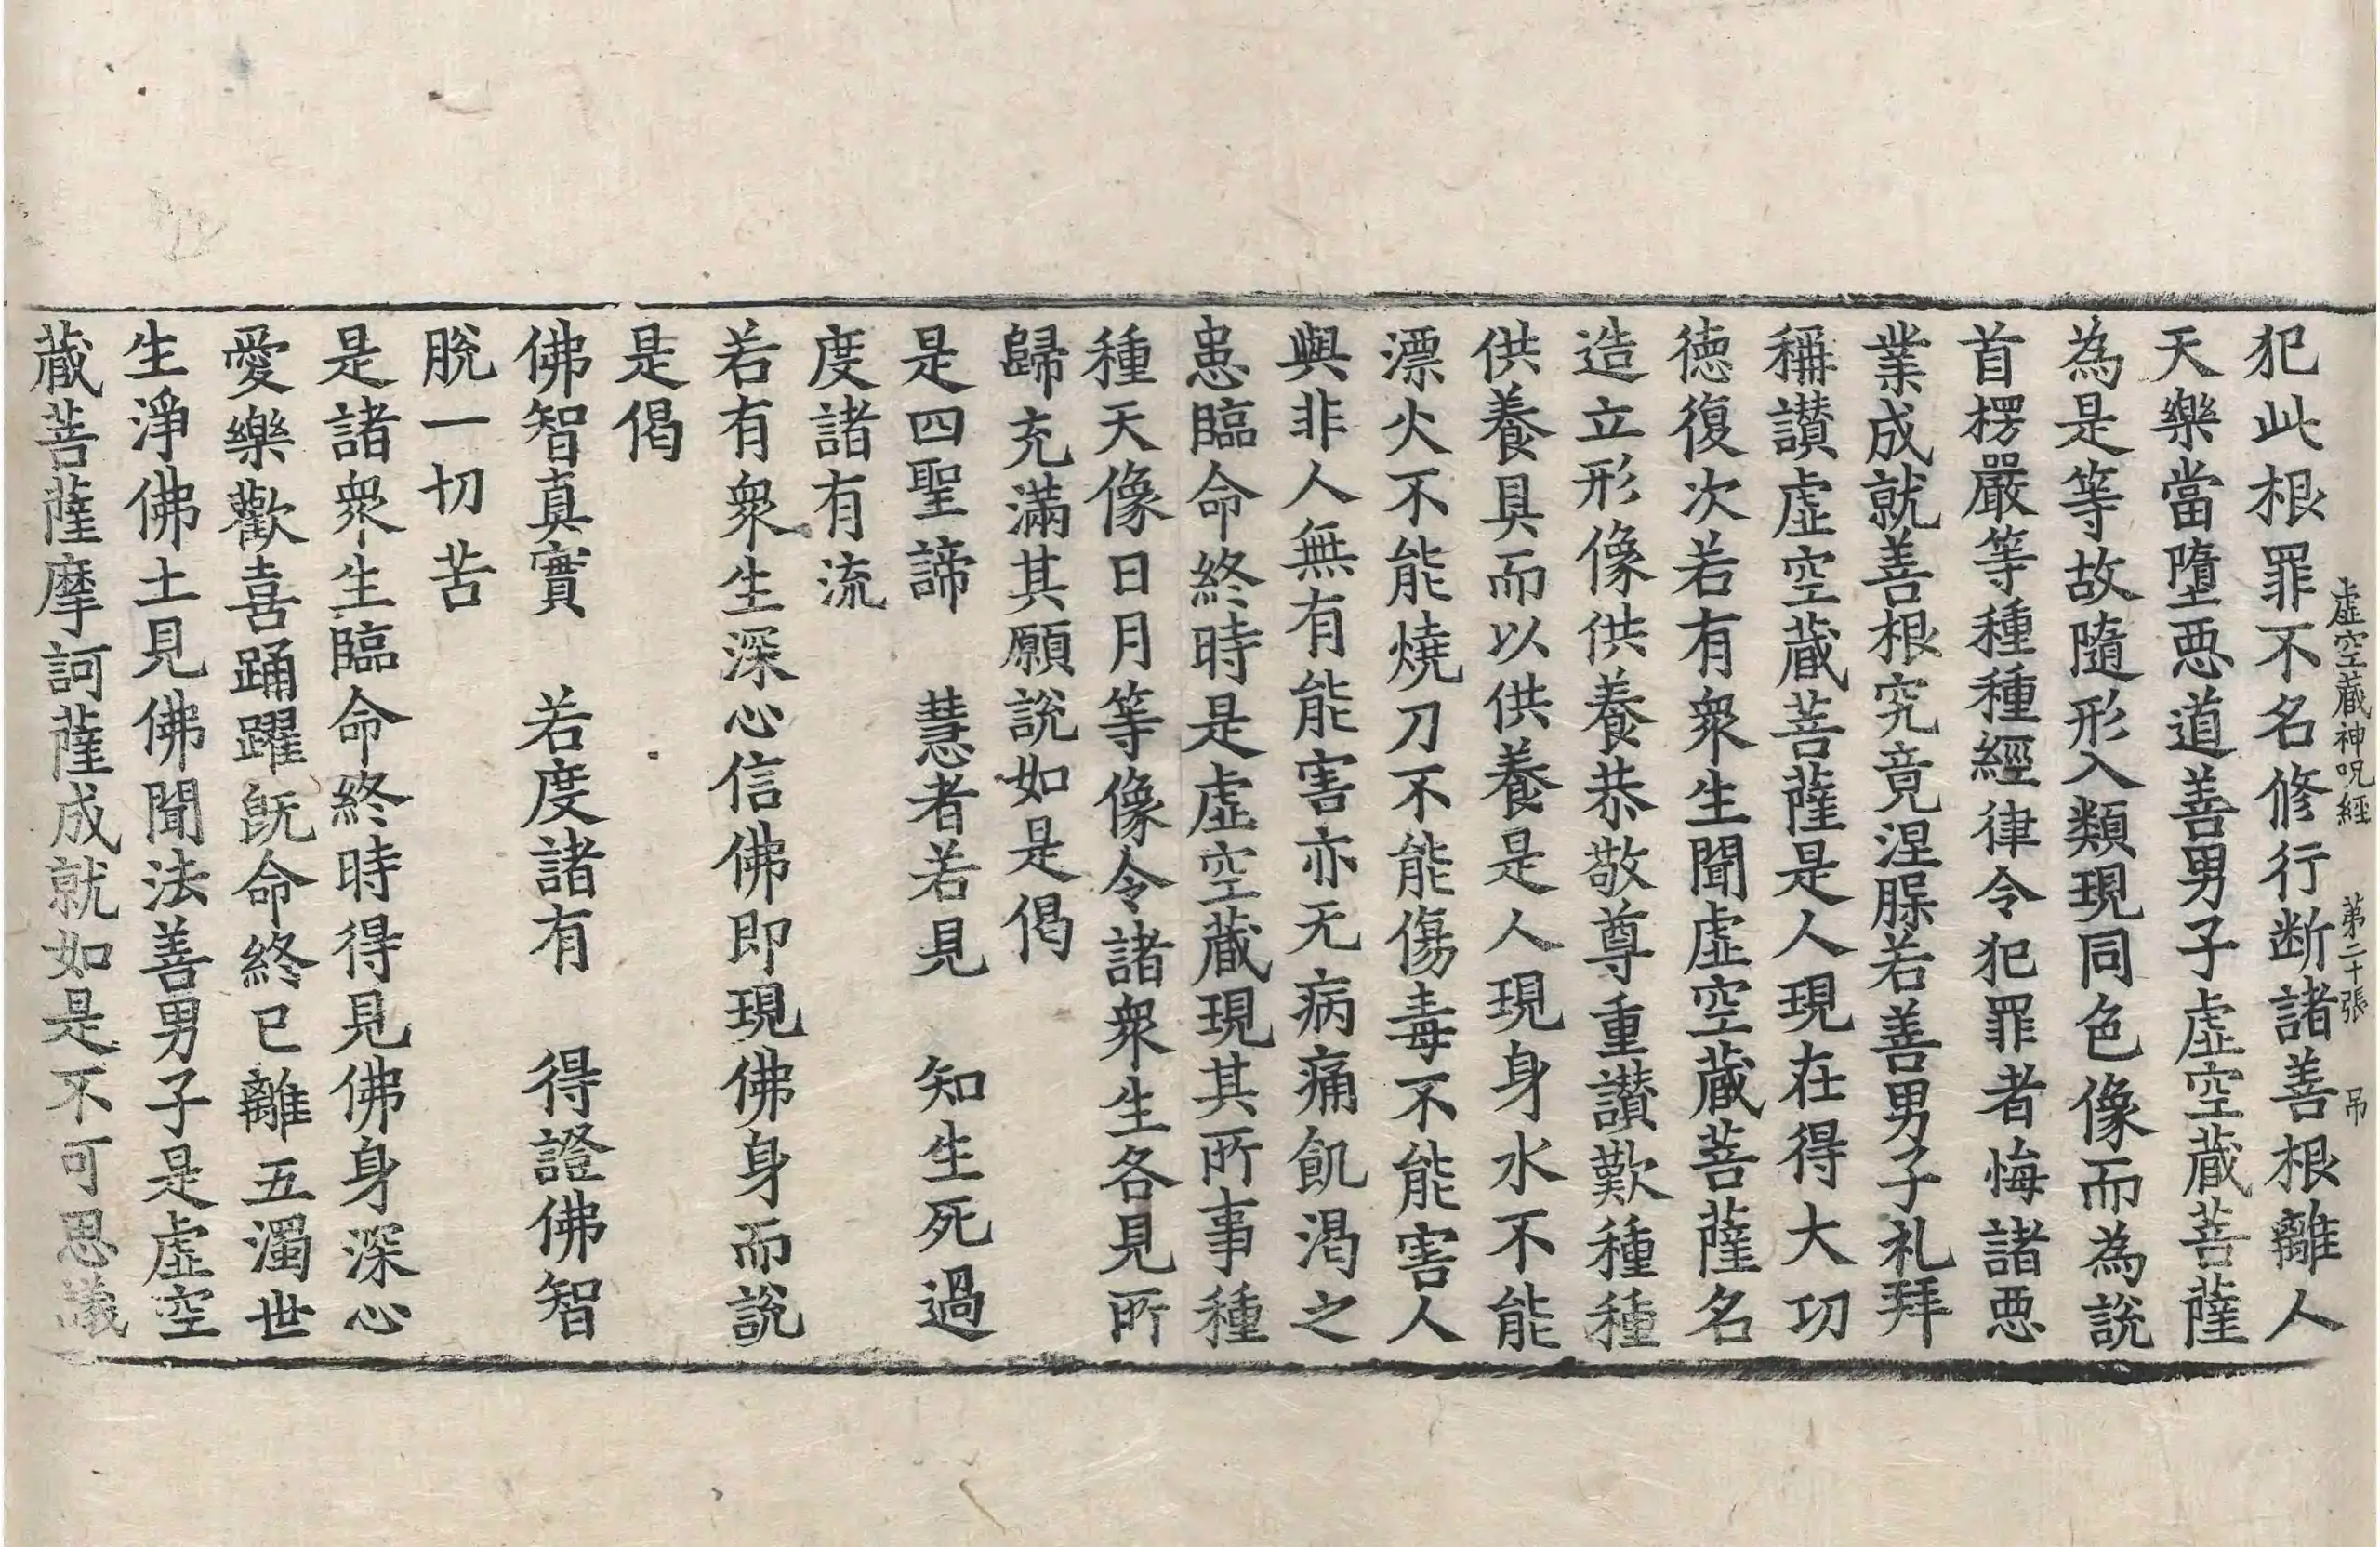 虛空蔵神呪經 苐二十張 吊
犯此根罪不名修行断諸善根離人
天樂當墮悪道善男子虛空蔵菩薩
為是等故隨形入類現同色像而為說
首楞嚴等種種經律令犯罪者悔諸悪
業成就善根究竟涅槃若善男子礼拜
稱讃虛空蔵菩薩是人現在得大功
徳復次若有衆生聞虛空蔵菩薩名
造立形像供養恭敬尊重讃歎種種
供養具而以供養是人現身水不能
漂火不能燒刀不能傷毒不能害人
與非人無有能害亦无病痛飢渴之
患臨命終時是虛空蔵現其所事種
種天像日月等像令諸衆生各見所
歸充滿其願說如是偈
是四聖諦 慧者若見 知生死過
度諸有流
若有衆生深心信佛即現佛身而說
是偈
佛智真實 若度諸有 得證佛智
脫一切苦
是諸衆生臨命終時得見佛身深心
愛樂歡喜踊躍旣命終已離五濁世
生淨佛土見佛聞法善男子是虛空
蔵菩薩摩訶薩成就如是不可思議